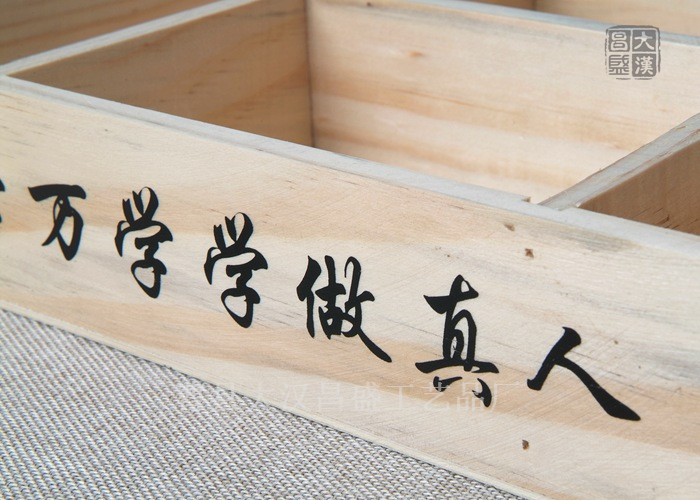 万学学做真人
大漢昌盛
大汉昌盛工艺品厂